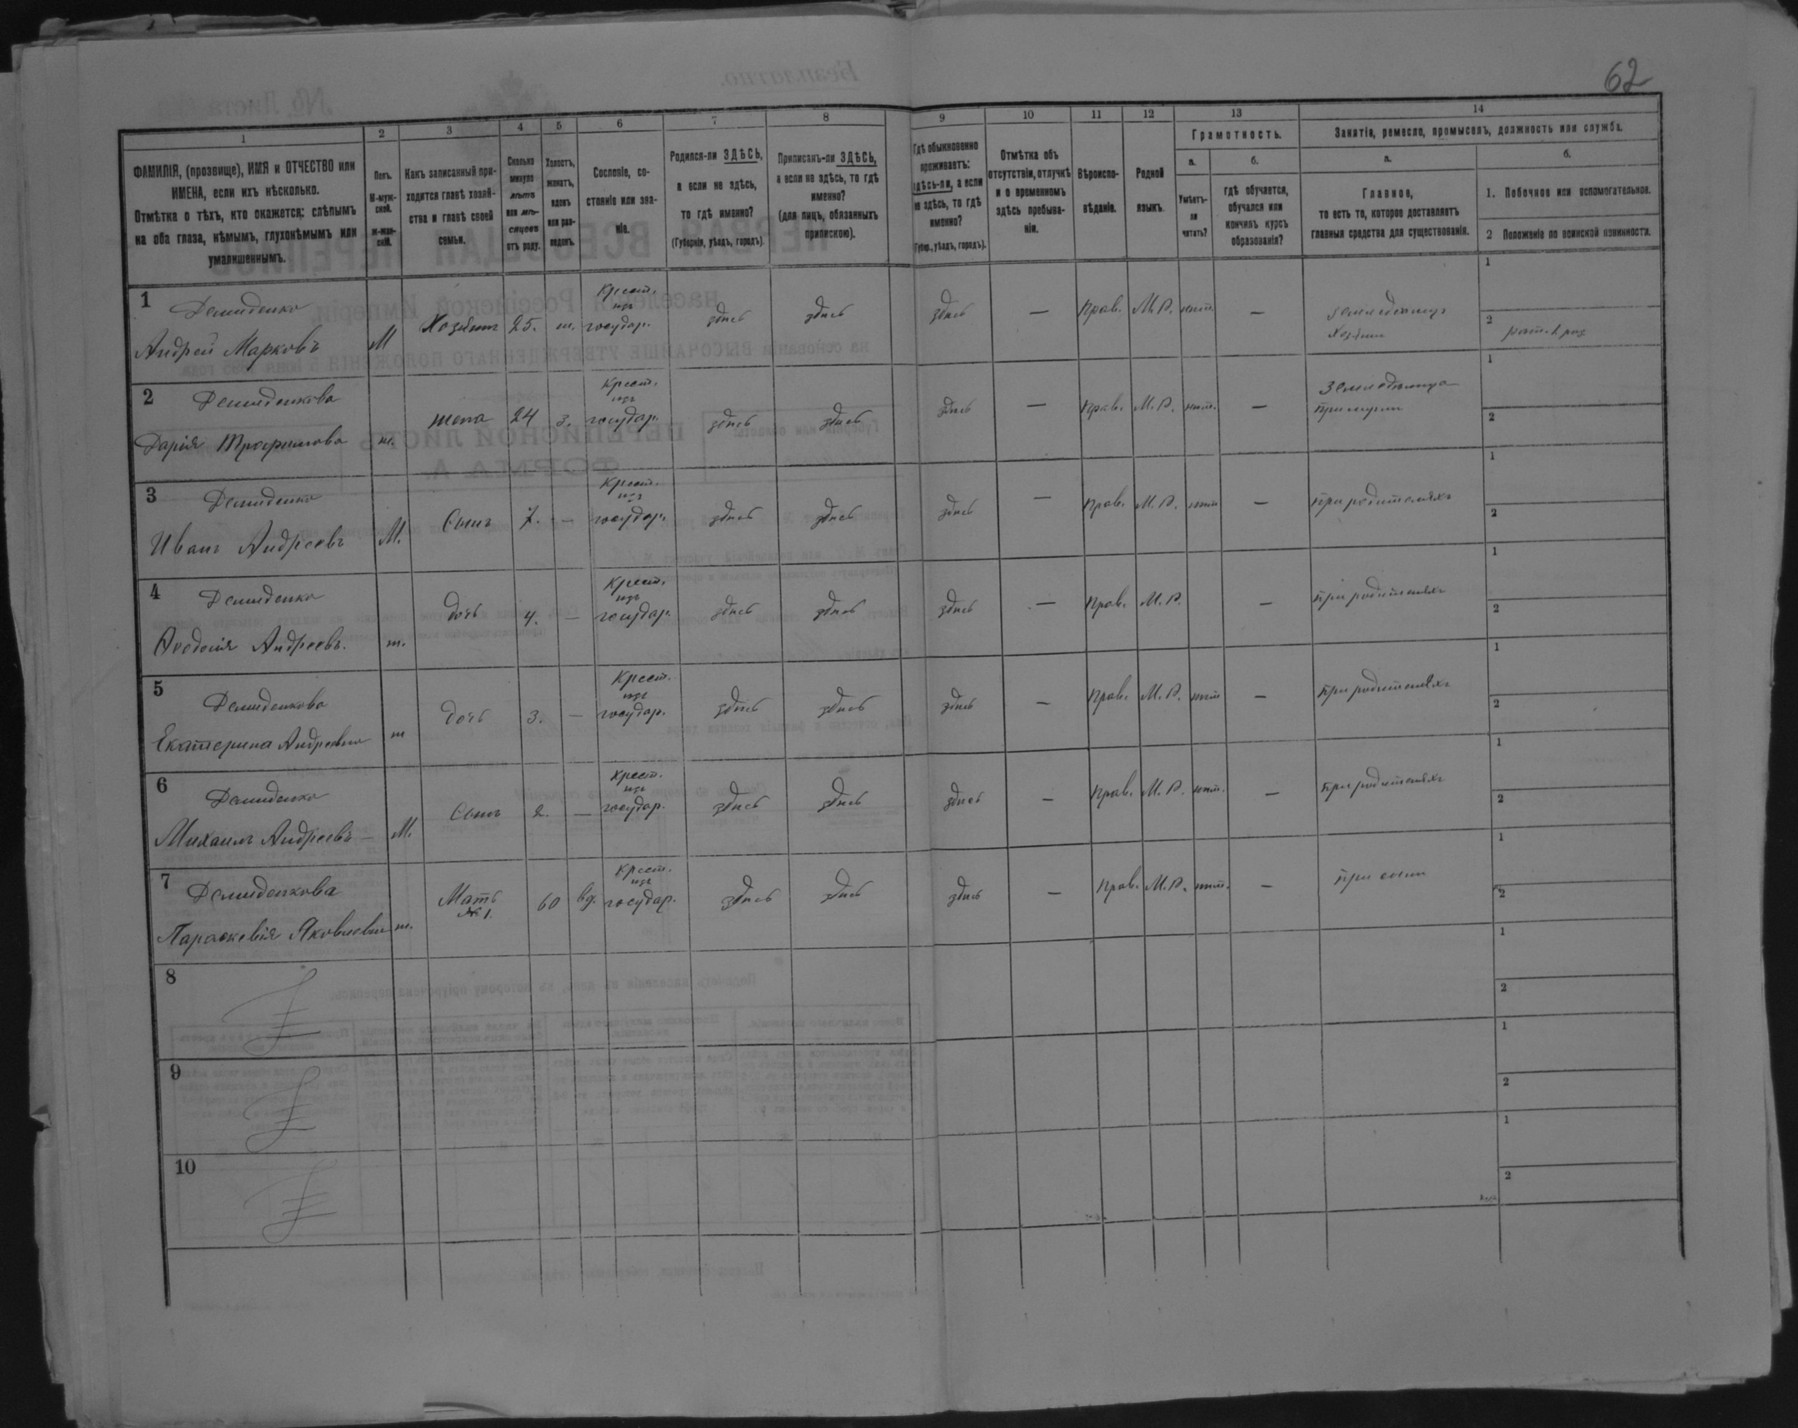 62
1
2
3
4
5
6
7
8
9
10
11
12
13
14
ФАМИЛІЯ, (прозвище), ИМЯ и ОТЧЕСТВО или
ИМЕНА, если ихъ нѣсколько.
Отмѣтка о тѣхъ, кто окажется: слѣпымъ
на оба глаза, нѣмымъ, глухонѣмымъ или
умалишеннымъ.
Полъ.
М-муж-
ской.
ж-жен-
скій.
Какъ записанный при-
ходится главѣ хозяй-
ства и главѣ своей
семьи.
Сколько
минуло
лѣтъ
или мѣ-
сяцевъ
отъ роду.
Холостъ,
женатъ,
вдовъ
или раз-
веденъ.
Сословіе, со-
стояніе или зва-
ніе.
Родился-ли ЗДѢСЬ,
а если не здѣсь,
то гдѣ именно?
(Губернія, уѣздъ, городъ).
Приписанъ-ли ЗДѢСЬ,
а если не здѣсь, то гдѣ
именно?
(для лицъ, обязанныхъ
припискою).
Гдѣ обыкновенно
проживаетъ:
здѣсь-ли, а если
не здѣсь, то гдѣ
именно?
(Губер., уѣздъ, городъ).
Отмѣтка объ
отсутствіи, отлучкѣ
и о временномъ
здѣсь пребыва-
ніи.
Вѣроиспо-
вѣданіе.
Родной
языкъ.
Грамотность.
а.
Умѣетъ-
ли
читать?
б.
гдѣ обучается,
обучался или
кончилъ курсъ
образованія?
Занятія, ремесло, промыселъ, должность или служба.
а.
Главное,
то есть то, которое доставляетъ
главныя средства для существованія.
б.
1. Побочное или вспомогательное.
2 Положеніе по воинской повинности.
1 Демиденко
Андрей Марковъ
М
Хозяинъ
25.
ж.
Крест.
изъ
государ.
здѣсь
здѣсь
здѣсь
—
Прав.
М. Р.
нѣт.
—
земледѣлецъ
Хозяинъ
1
2
2 Демиденкова
Дарія Трофимова
ж.
жена
24
з.
Крест.
изъ
государ.
здѣсь
здѣсь
здѣсь
—
Прав.
М. Р.
нѣт.
—
Земледѣлица
при мужи
1
2
3 Демиденко
Иванъ Андреевъ
М.
Сынъ
7.
—
Крест.
изъ
государ.
здѣсь
здѣсь
здѣсь
—
Прав.
М. Р.
нѣт
—
при родителяхъ
1
2
4 Демиденко
Ѳеодосія Андреевъ.
ж.
дочь
4.
—
Крест.
изъ
государ.
здѣсь
здѣсь
здѣсь
—
Прав.
М. Р.
—
при родителяхъ
1
2
5 Демиденкова
Екатерина Андреевна
ж
дочь
3.
—
Крест.
изъ
государ.
здѣсь
здѣсь
здѣсь
—
Прав.
М. Р.
нѣт
—
при родителяхъ
1
2
6 Демиденко
Михаилъ Андреевъ —
М.
Сынъ
2.
—
Крест.
изъ
государ.
здѣсь
здѣсь
здѣсь
—
Прав.
М. Р.
нѣт.
—
при родителяхъ
1
2
7 Демиденкова
Параскевія Яковлевна
ж.
Мать
№ 1.
60
вд.
Крест.
изъ
государ.
здѣсь
здѣсь
здѣсь
—
Прав.
М. Р.
нѣт.
—
при сыни
1
2
8
1
2
9
1
2
10
1
2